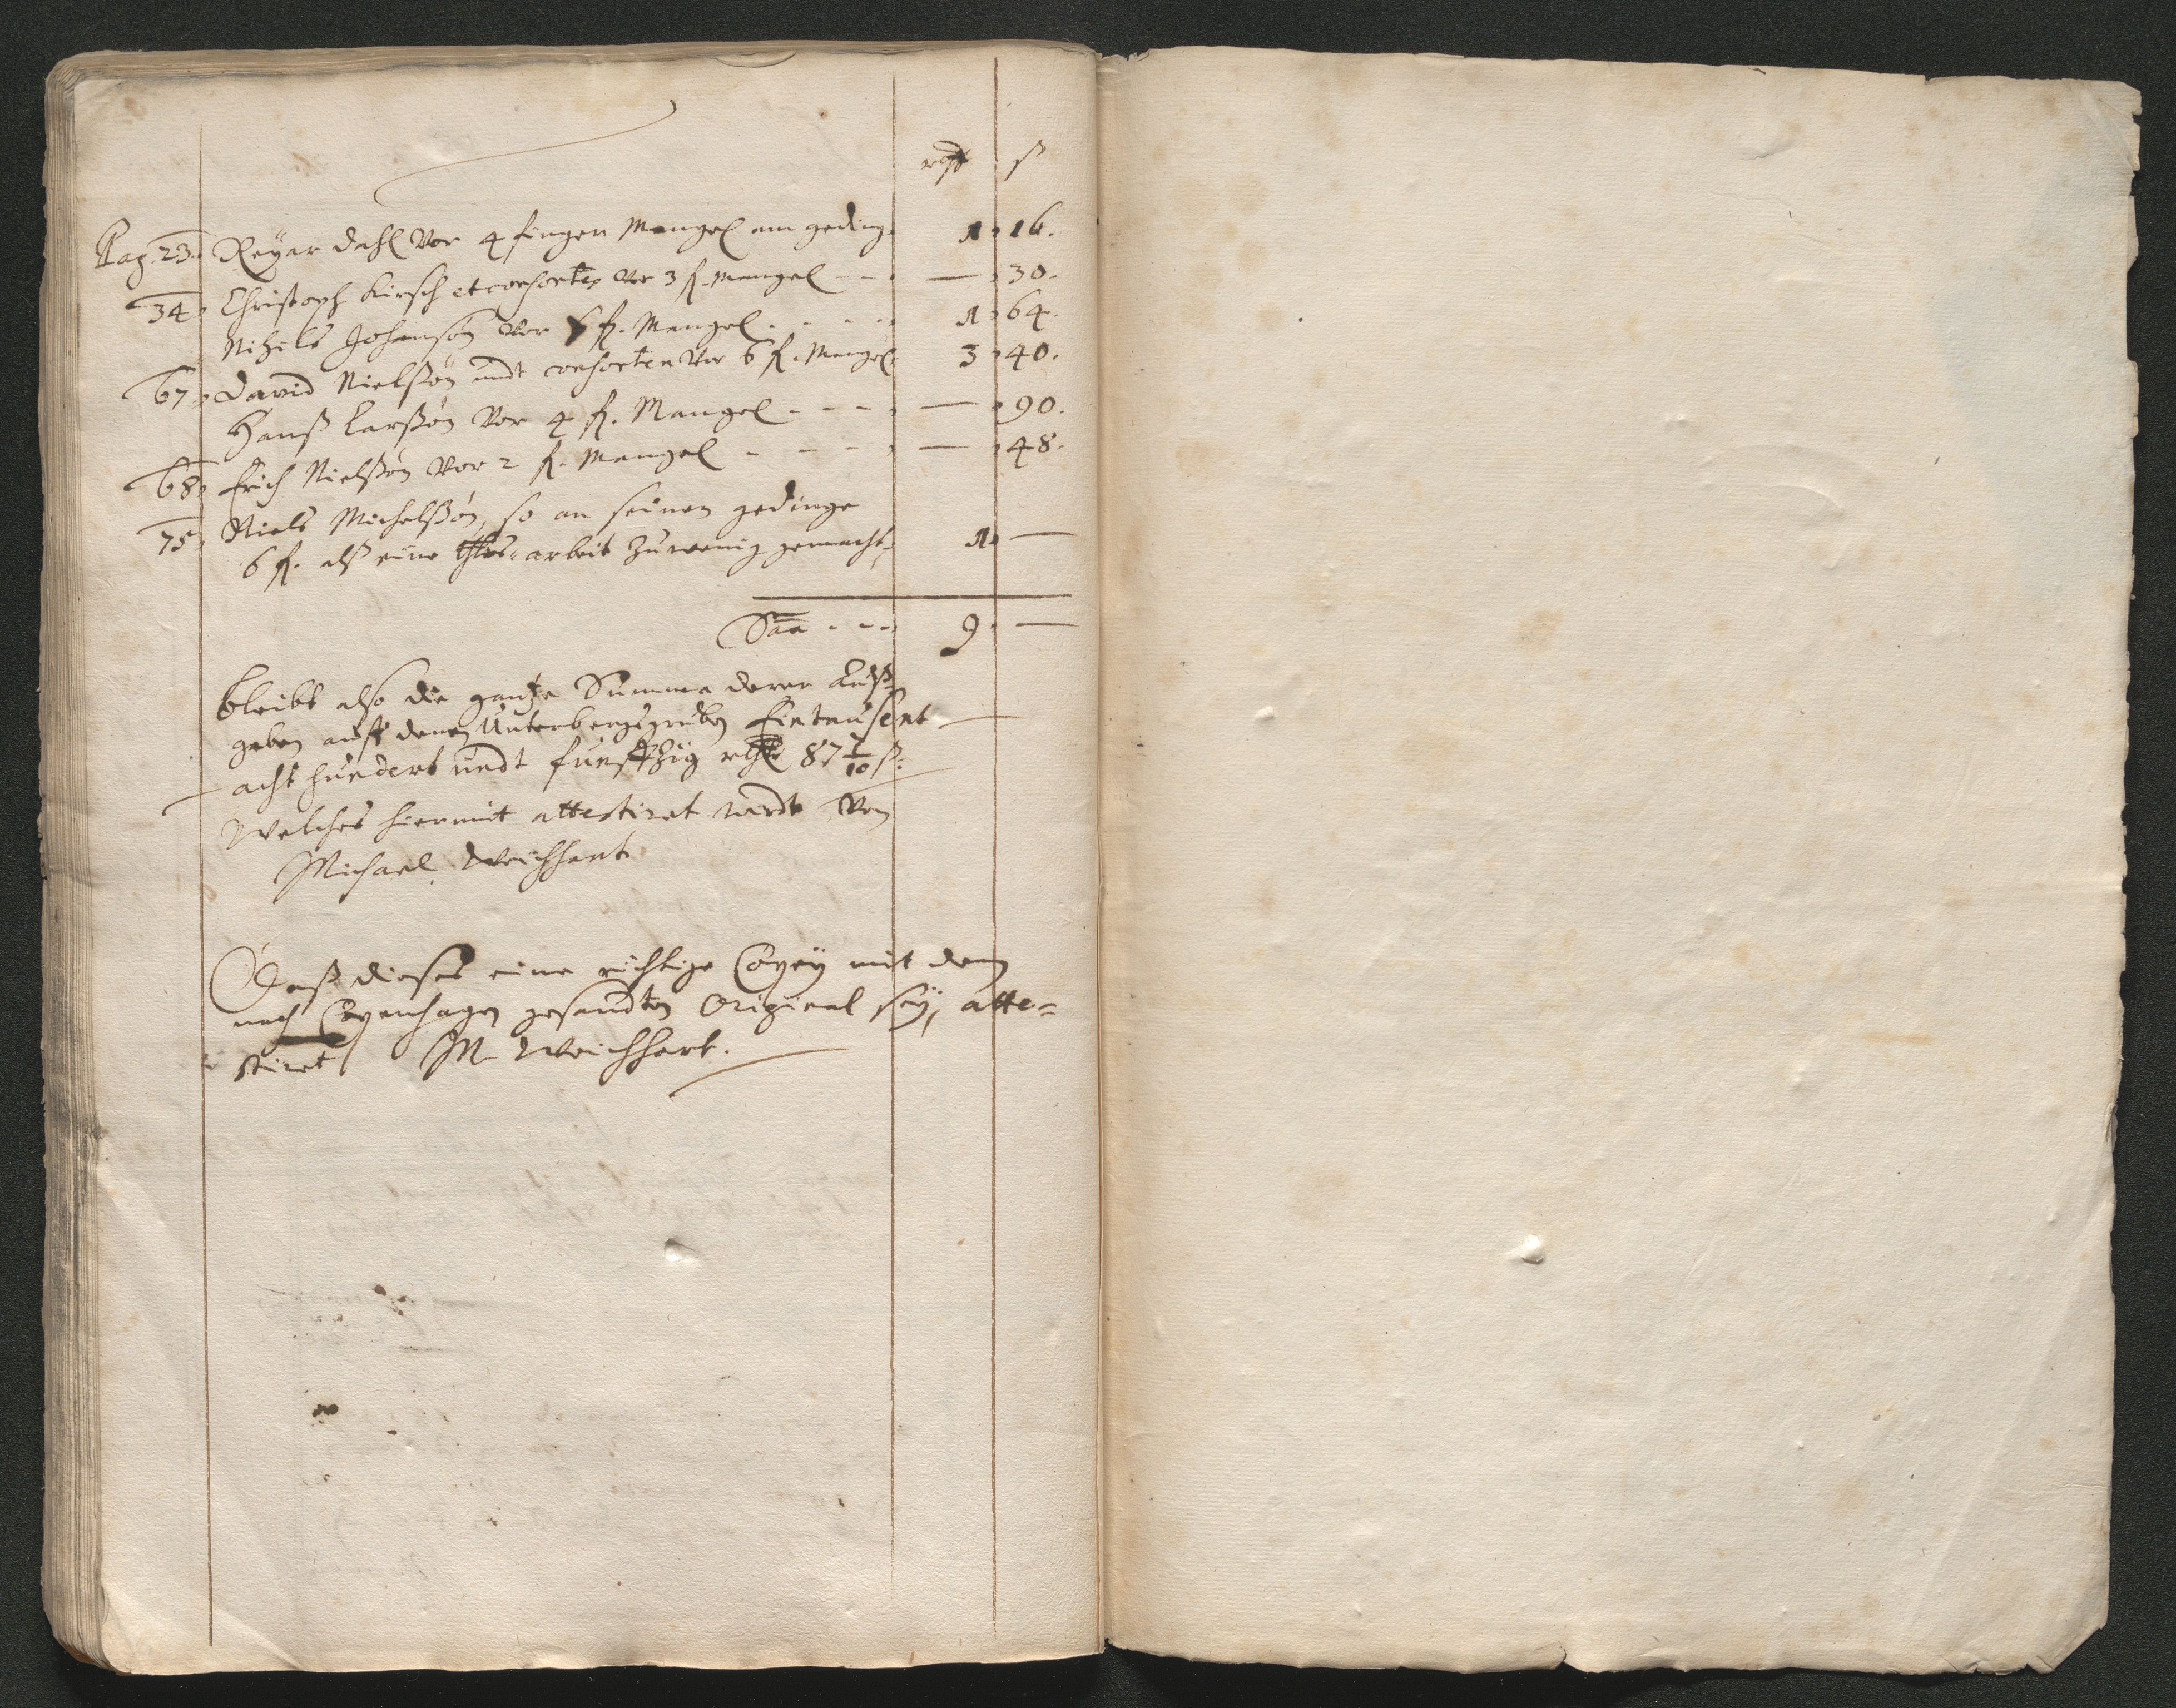 rthlr ß
Pag. 23. Reyer Dahl Vor 4 finger Mangel am geding 1 - 16.
34. Christoph Kirsch et consorten Vor 3 f. Mangel - - - — 30.
Nihils Johanson Vor 6 f. Mangel - - - - 1 - 64.
67. David Nielßøn undt consorten Vor 6 f. Mangel 3 - 40.
Hanß Larßøn Vor 4 f. Mangel - - - - — 90.
68. Erich Nielßøn Vor 2 f. Mangel - - - - — 48.
75. Niels Michelßøn, so an seinen gedinge
6 f. alß eine arbeit zu wenig gemacht, 1 —
Sa̅a - - - 9 —
bleibt also die gantze Summa derer Auß-
geben auff denen Unterbergsgruben Eintausent
acht hundert undt funffzig rthlr 87 1/10 ß.
Welches hiermit attestiret wirdt Von
Michael Weichhart
Daß dieses eine richtige Copey mit dem
nach Copenhagen gesandten Original sey, atte=
stiret M. Weichhart.